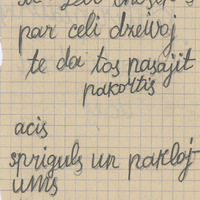 par celi dzeivoj
te da tos pasajit
pakortis
acis
spriguls un pakloj
ums